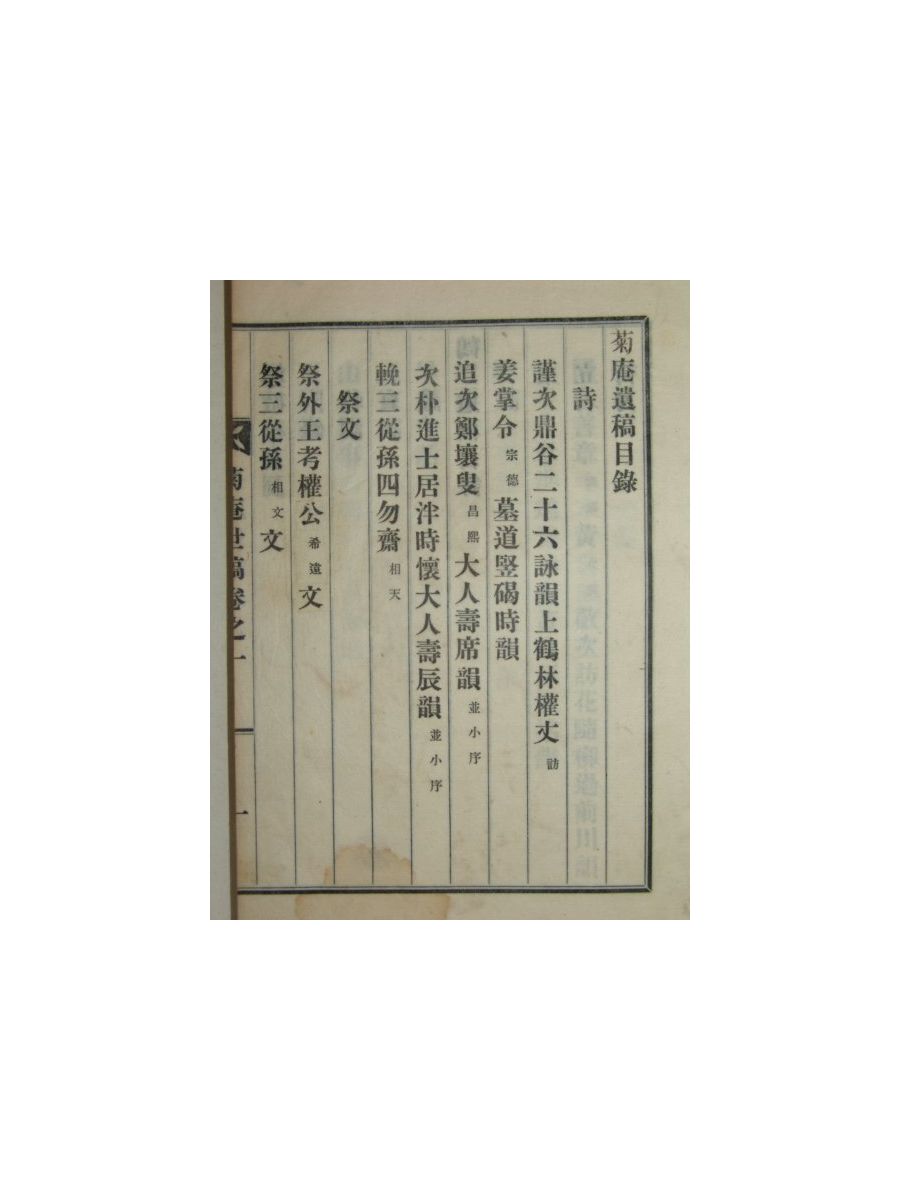 菊庵遺稿目錄
詩
謹次鼎谷二十六詠韻上鶴林權丈訪
姜掌令宗德墓道竪碣時韻
追次鄭壤叟昌熙大人壽席韻並小序
次朴進士居泮時懷大人壽辰韻並小序
輓三從孫四勿齋相天
祭文
祭外王考權公希遠文
祭三從孫相文文
菊庵世稿卷之一
一